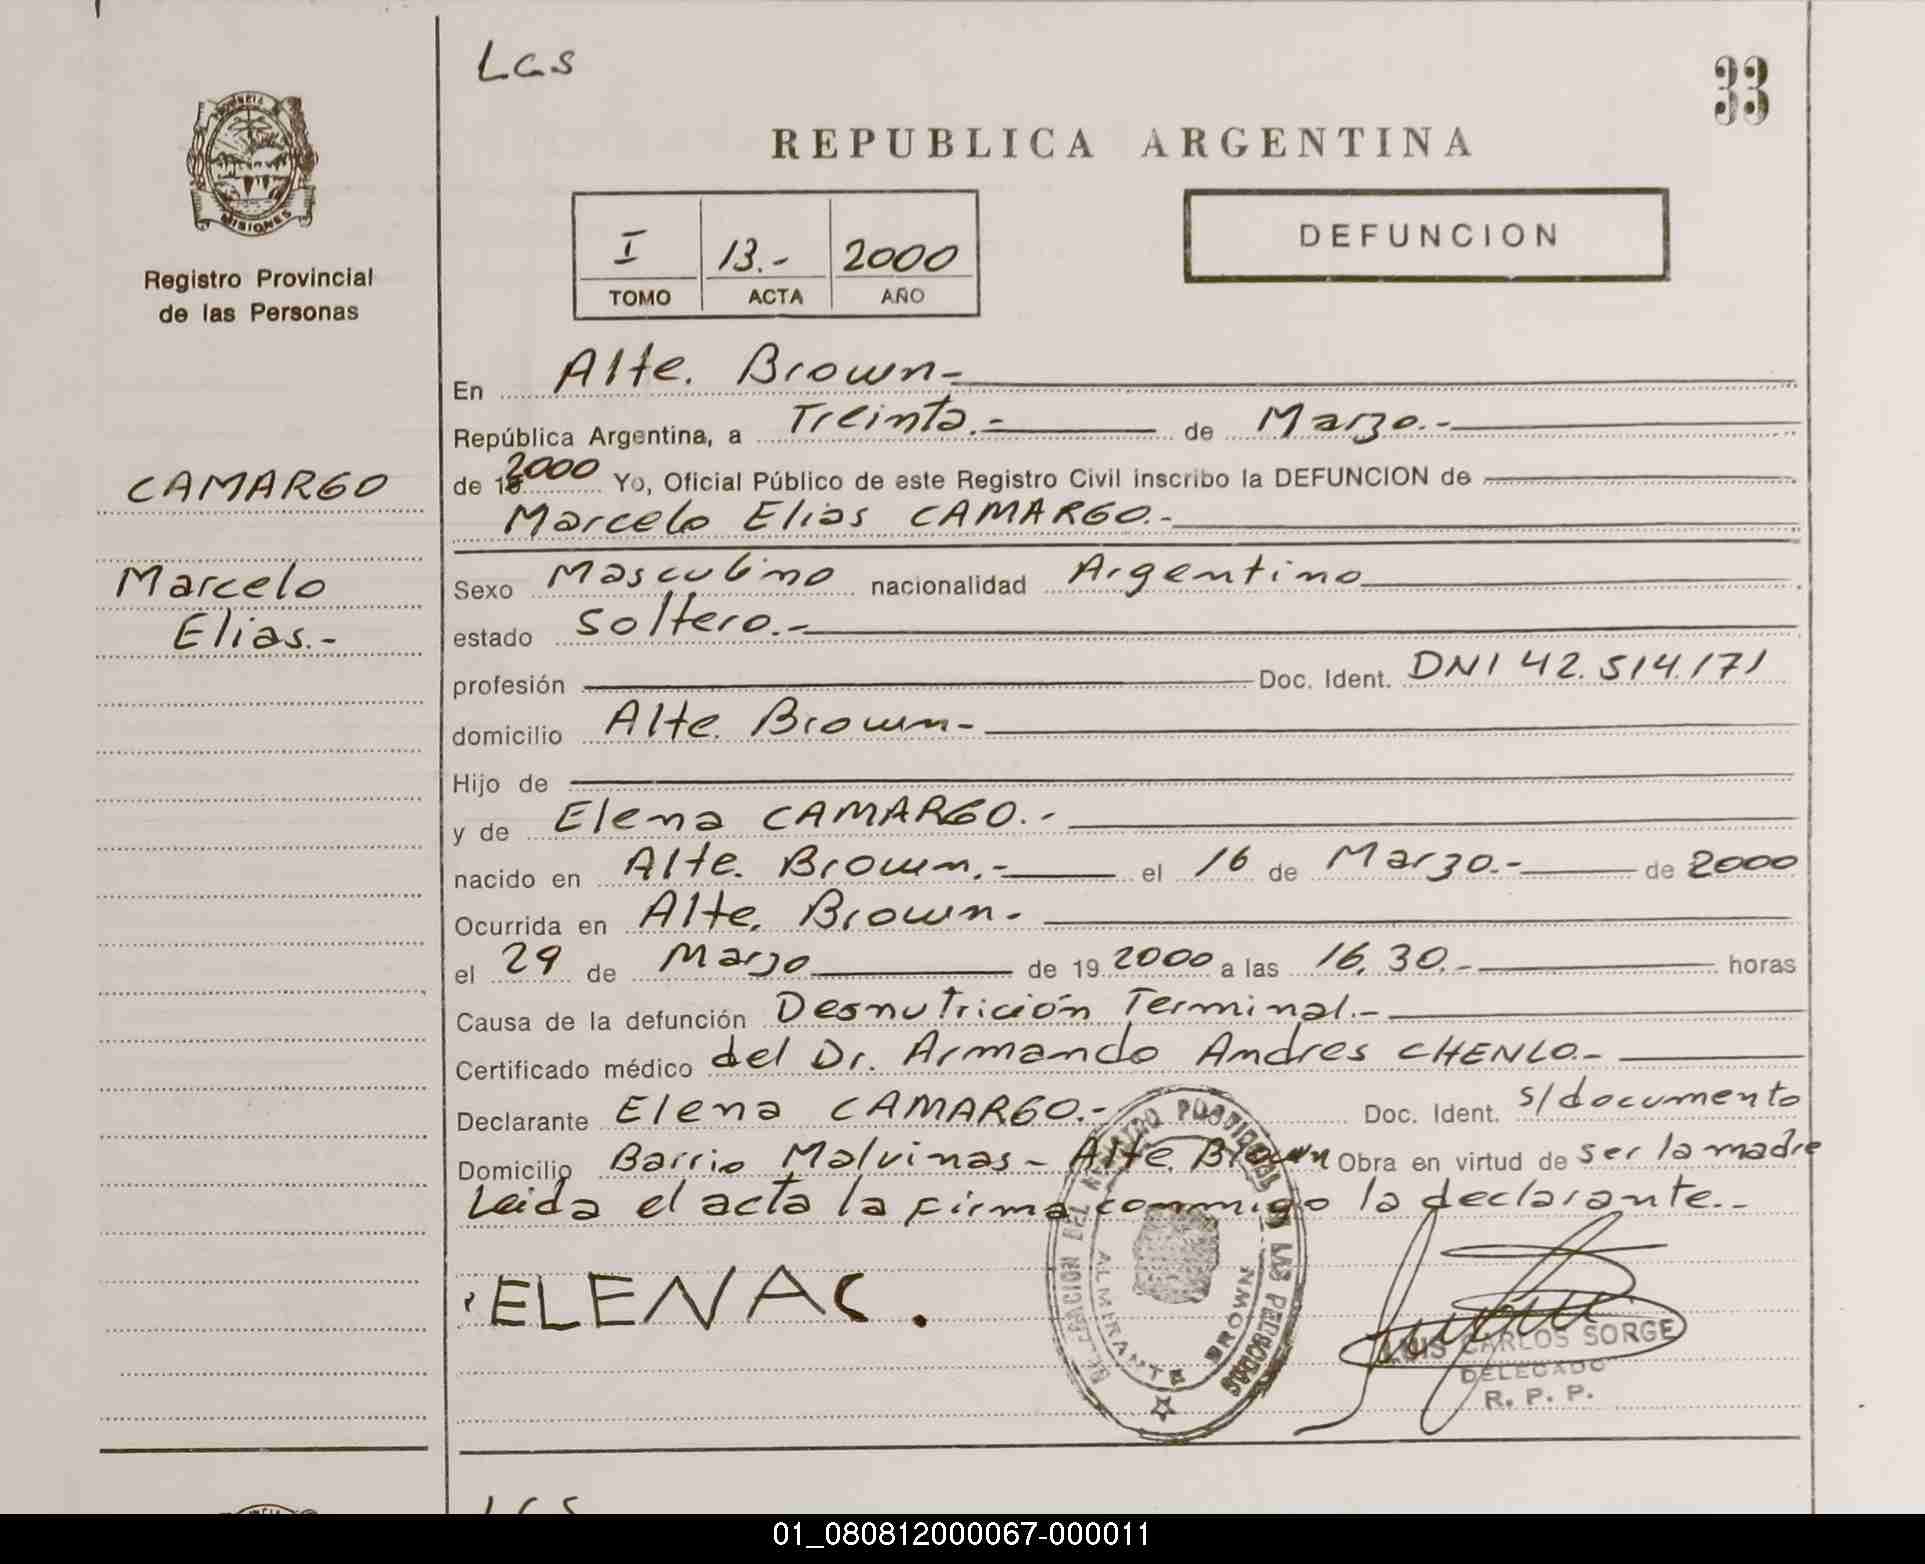 LCS
33
PROVINCIA DE
MISIONES
Registro Provincial
de las Personas
REPUBLICA ARGENTINA
I 13.- 2000
TOMO ACTA AÑO
DEFUNCION
CAMARGO
Marcelo
Elias.-
En Alte. Brown-
República Argentina, a Treinta.- de Marzo.-
de 19 2000 Yo, Oficial Público de este Registro Civil inscribo la DEFUNCION de
Marcelo Elias CAMARGO.-
Sexo Masculino nacionalidad Argentino
estado Soltero.-
profesión Doc. Ident. DNI 42.514.171
domicilio Alte. Brown-
Hijo de
y de Elena CAMARGO.-
nacido en Alte. Brown.- el 16 de Marzo.- de 2000
Ocurrida en Alte. Brown.
el 29 de Marzo de 19 2000 a las 16,30.- horas
Causa de la defunción Desnutrición Terminal.-
Certificado médico del Dr. Armando Andres CHENLO.-
Declarante Elena CAMARGO.- Doc. Ident. s/documento
Domicilio Barrio Malvinas - Alte. Brown Obra en virtud de ser la madre
Leida el acta la firma conmigo la declarante.-
ELENA C.
ALMIRANTE BROWN
LUIS CARLOS SORGE
DELEGADO
R. P. P.
LCS
01_080812000067-000011